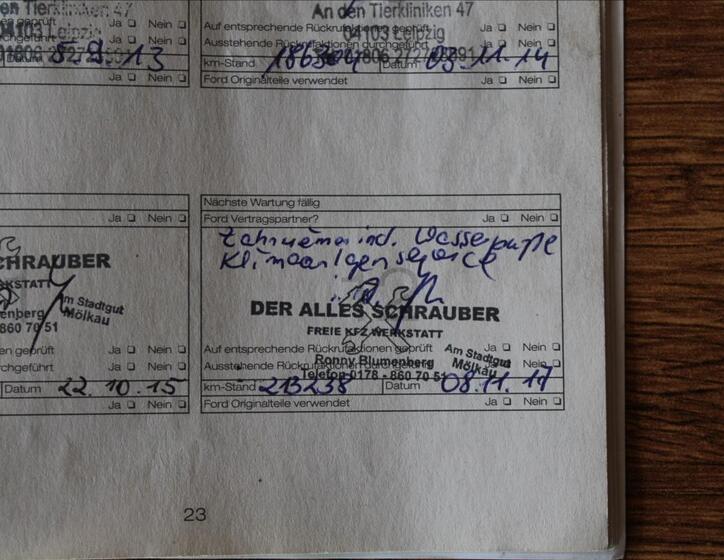 en Tierkliniken 47
geprüft Ja Nein
04103 Leipzig
chgeführt Ja Nein
Datum 5.9.13
Ja Nein
An den Tierkliniken 47
Auf entsprechende Rückrufaktionen geprüft Ja Nein
04103 Leipzig
Ausstehende Rückrufaktionen durchgeführt Ja Nein
km-Stand Datum 03.11.14
Ford Originalteile verwendet Ja Nein
Ja Nein
CHRAUBER
KSTATT
Am Stadtgut
Mölkau
enberg
860 70 51
en geprüft Ja Nein
chgeführt Ja Nein
Datum 22.10.15
Ja Nein
Nächste Wartung fällig
Ford Vertragspartner? Ja Nein
Zahnriemen incl. Wasserpumpe
Klimaanlagenservice
DER ALLES SCHRAUBER
FREIE KFZ WERKSTATT
Auf entsprechende Rückrufaktionen geprüft Ja Nein
Am Stadtgut
Mölkau
Ronny Blumenberg
Ausstehende Rückrufaktionen durchgeführt Ja Nein
Telefon 0178 - 860 70 51
km-Stand 213238 Datum 08.11.17
Ford Originalteile verwendet Ja Nein
23